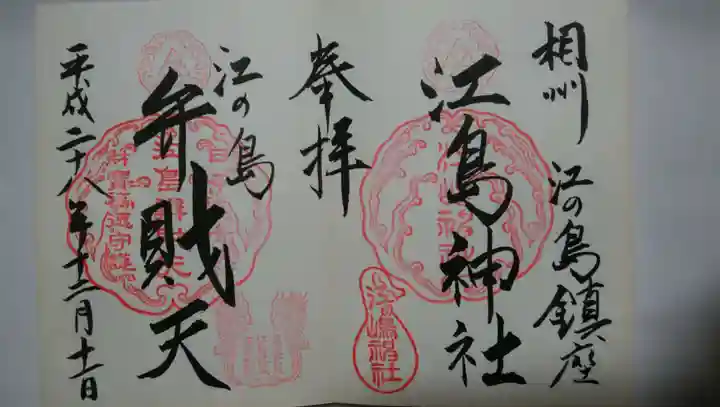 相州
江の島鎮座
江島神社
奉拝
江の島
弁財天
平成二十八年十二月十一日